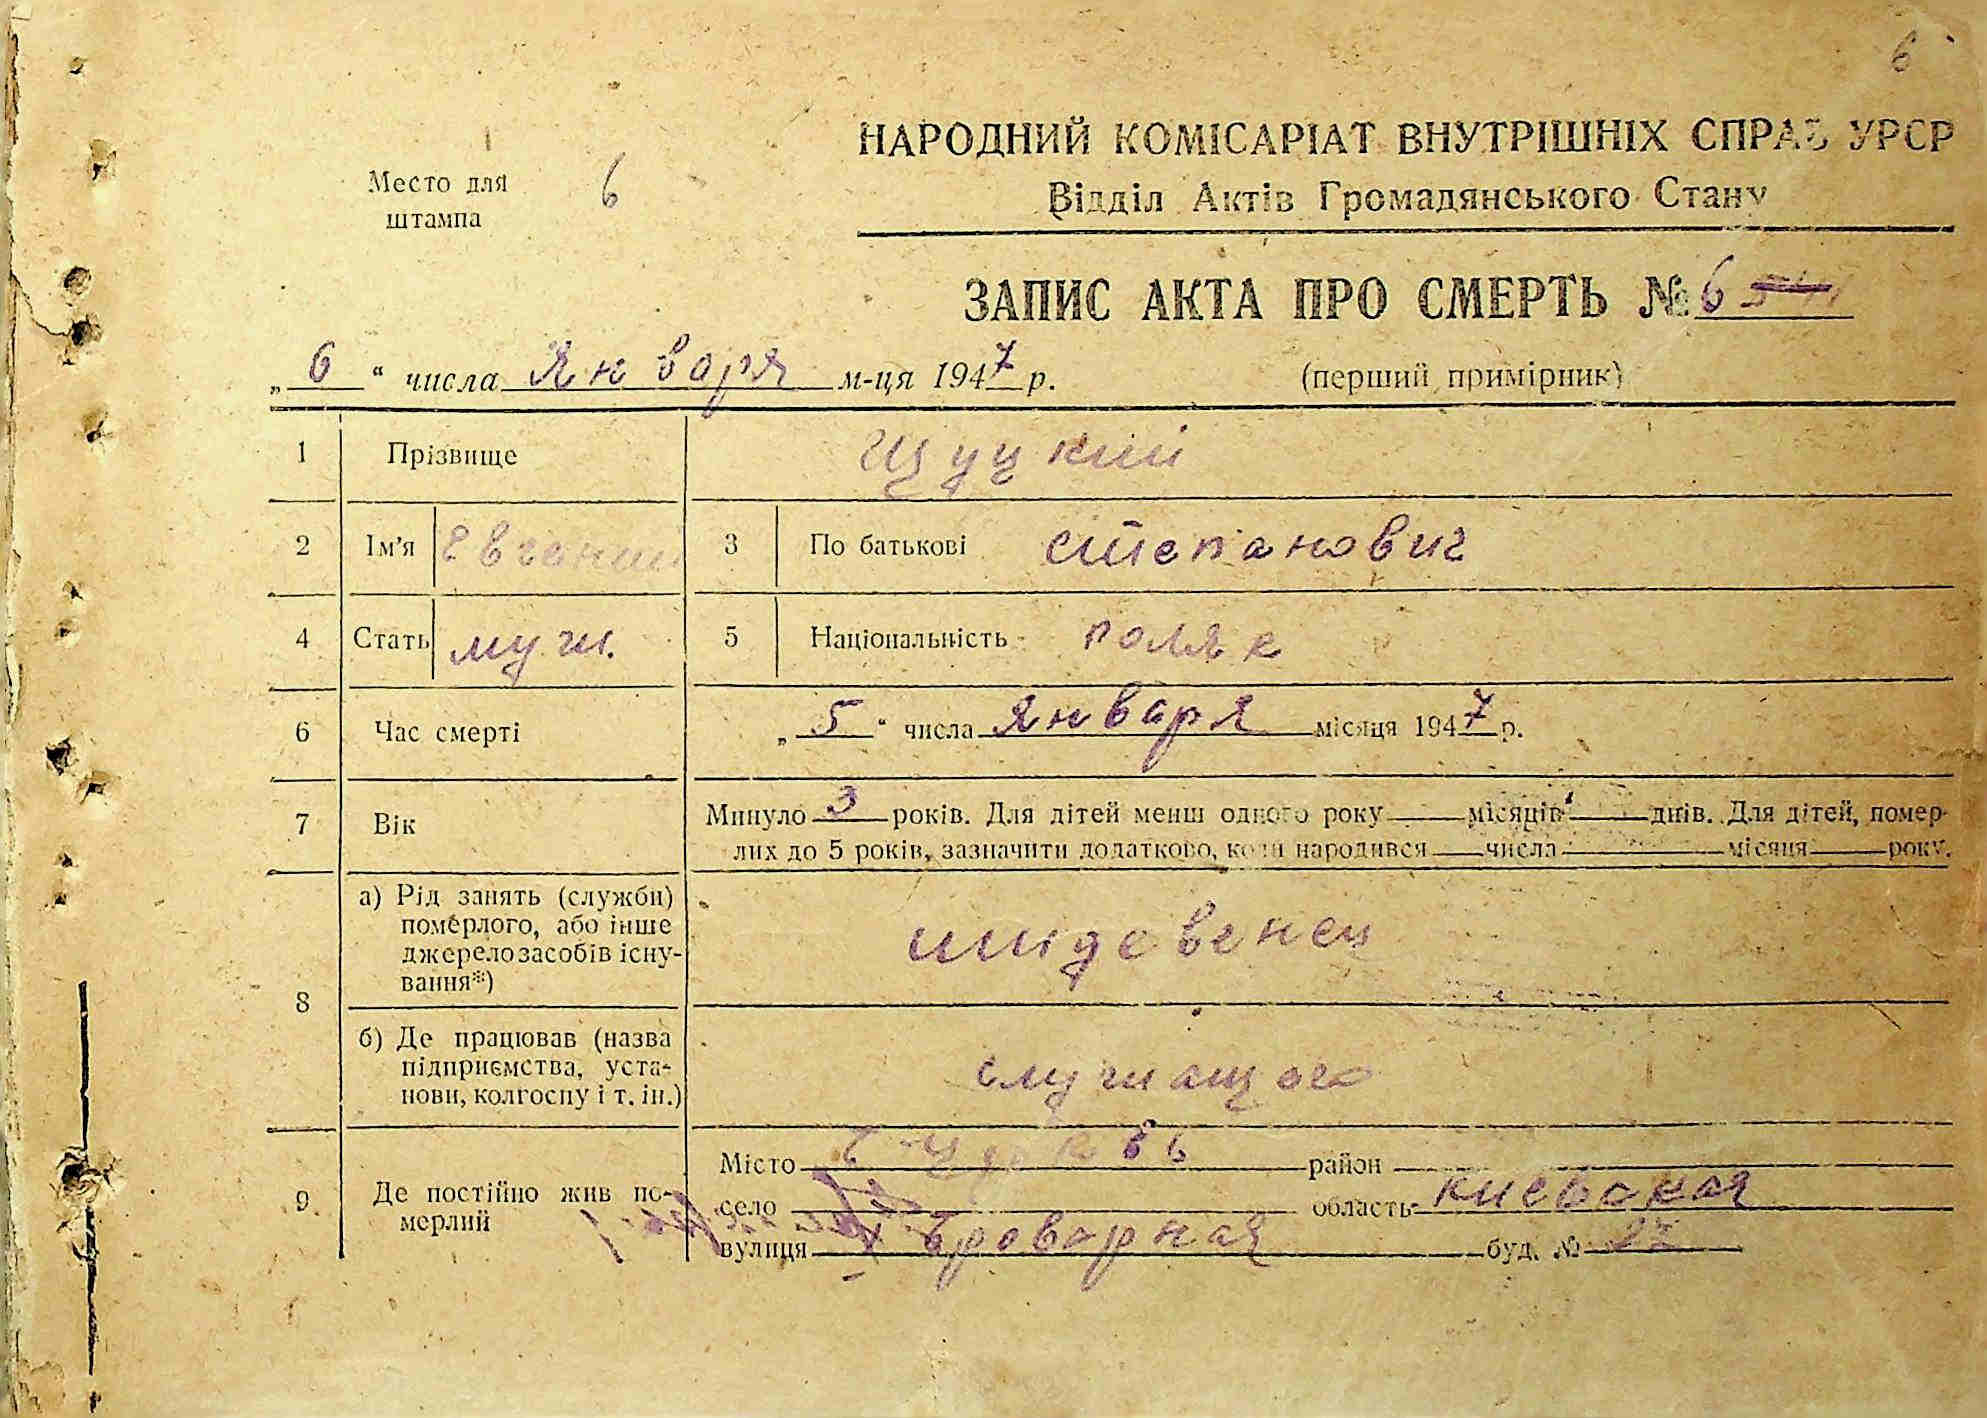 6
НАРОДНИЙ КОМІСАРІАТ ВНУТРІШНІХ СПРАВ УРСР
Место для штампа
6
Відділ Актів Громадянського Стану
ЗАПИС АКТА ПРО СМЕРТЬ № 6
„ 6 “ числа Января м-ця 1947 р. (перший примірник)
1 Прізвище Щуцкий
2 Ім'я Евгений 3 По батькові Степанович
4 Стать муж. 5 Національність поляк
6 Час смерті „ 5 “ числа Января місяця 1947 р.
7 Вік Минуло 3 років. Для дітей менш одного року місяців днів. Для дітей, помер-
лих до 5 років, зазначити додатково, коли народився числа місяця року.
8 а) Рід занять (служби)
померлого, або інше
джерело засобів існу-
вання*) иждевенец
б) Де працював (назва
підприємства, уста-
нови, колгоспу і т. ін.) служащего
9 Де постійно жив по-
мерлий
Місто район
село область Киевская
вулиця Броварная буд. № 27